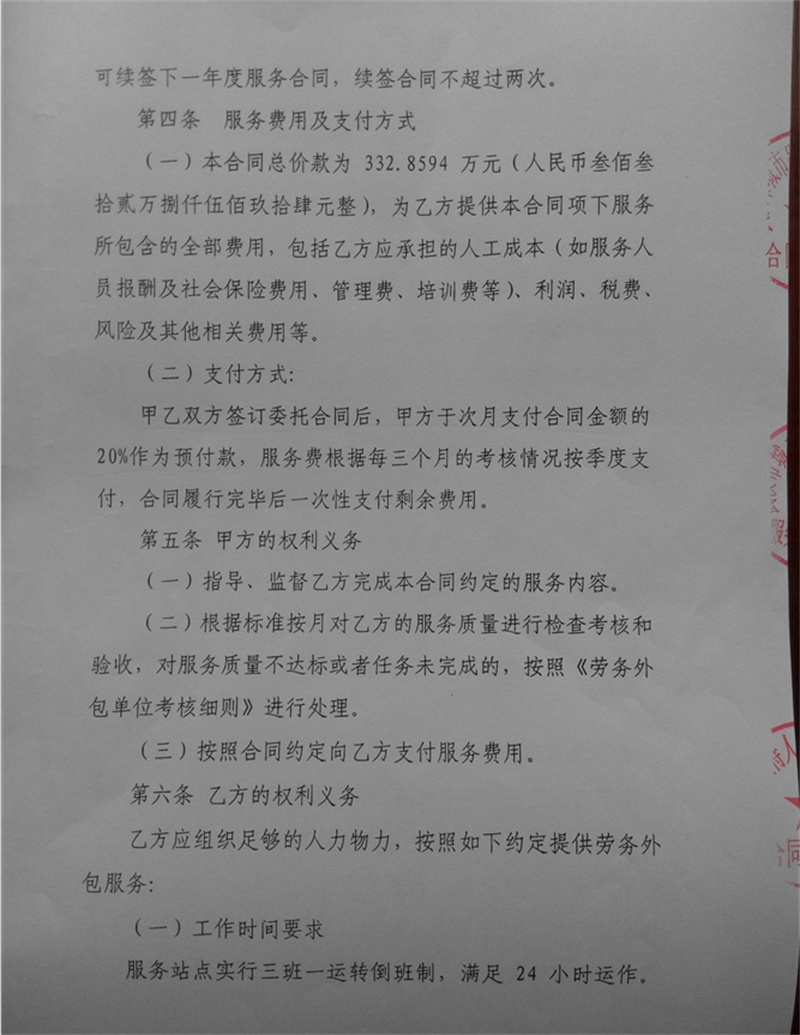 可续签下一年度服务合同，续签合同不超过两次。
第四条 服务费用及支付方式
（一）本合同总价款为 332.8594 万元（人民币叁佰叁
拾贰万捌仟伍佰玖拾肆元整），为乙方提供本合同项下服务
所包含的全部费用，包括乙方应承担的人工成本（如服务人
员报酬及社会保险费用、管理费、培训费等）、利润、税费、
风险及其他相关费用等。
（二）支付方式：
甲乙双方签订委托合同后，甲方于次月支付合同金额的
20%作为预付款，服务费根据每三个月的考核情况按季度支
付，合同履行完毕后一次性支付剩余费用。
第五条 甲方的权利义务
（一）指导、监督乙方完成本合同约定的服务内容。
（二）根据标准按月对乙方的服务质量进行检查考核和
验收，对服务质量不达标或者任务未完成的，按照《劳务外
包单位考核细则》进行处理。
（三）按照合同约定向乙方支付服务费用。
第六条 乙方的权利义务
乙方应组织足够的人力物力，按照如下约定提供劳务外
包服务：
（一）工作时间要求
服务站点实行三班一运转倒班制，满足 24 小时运作。